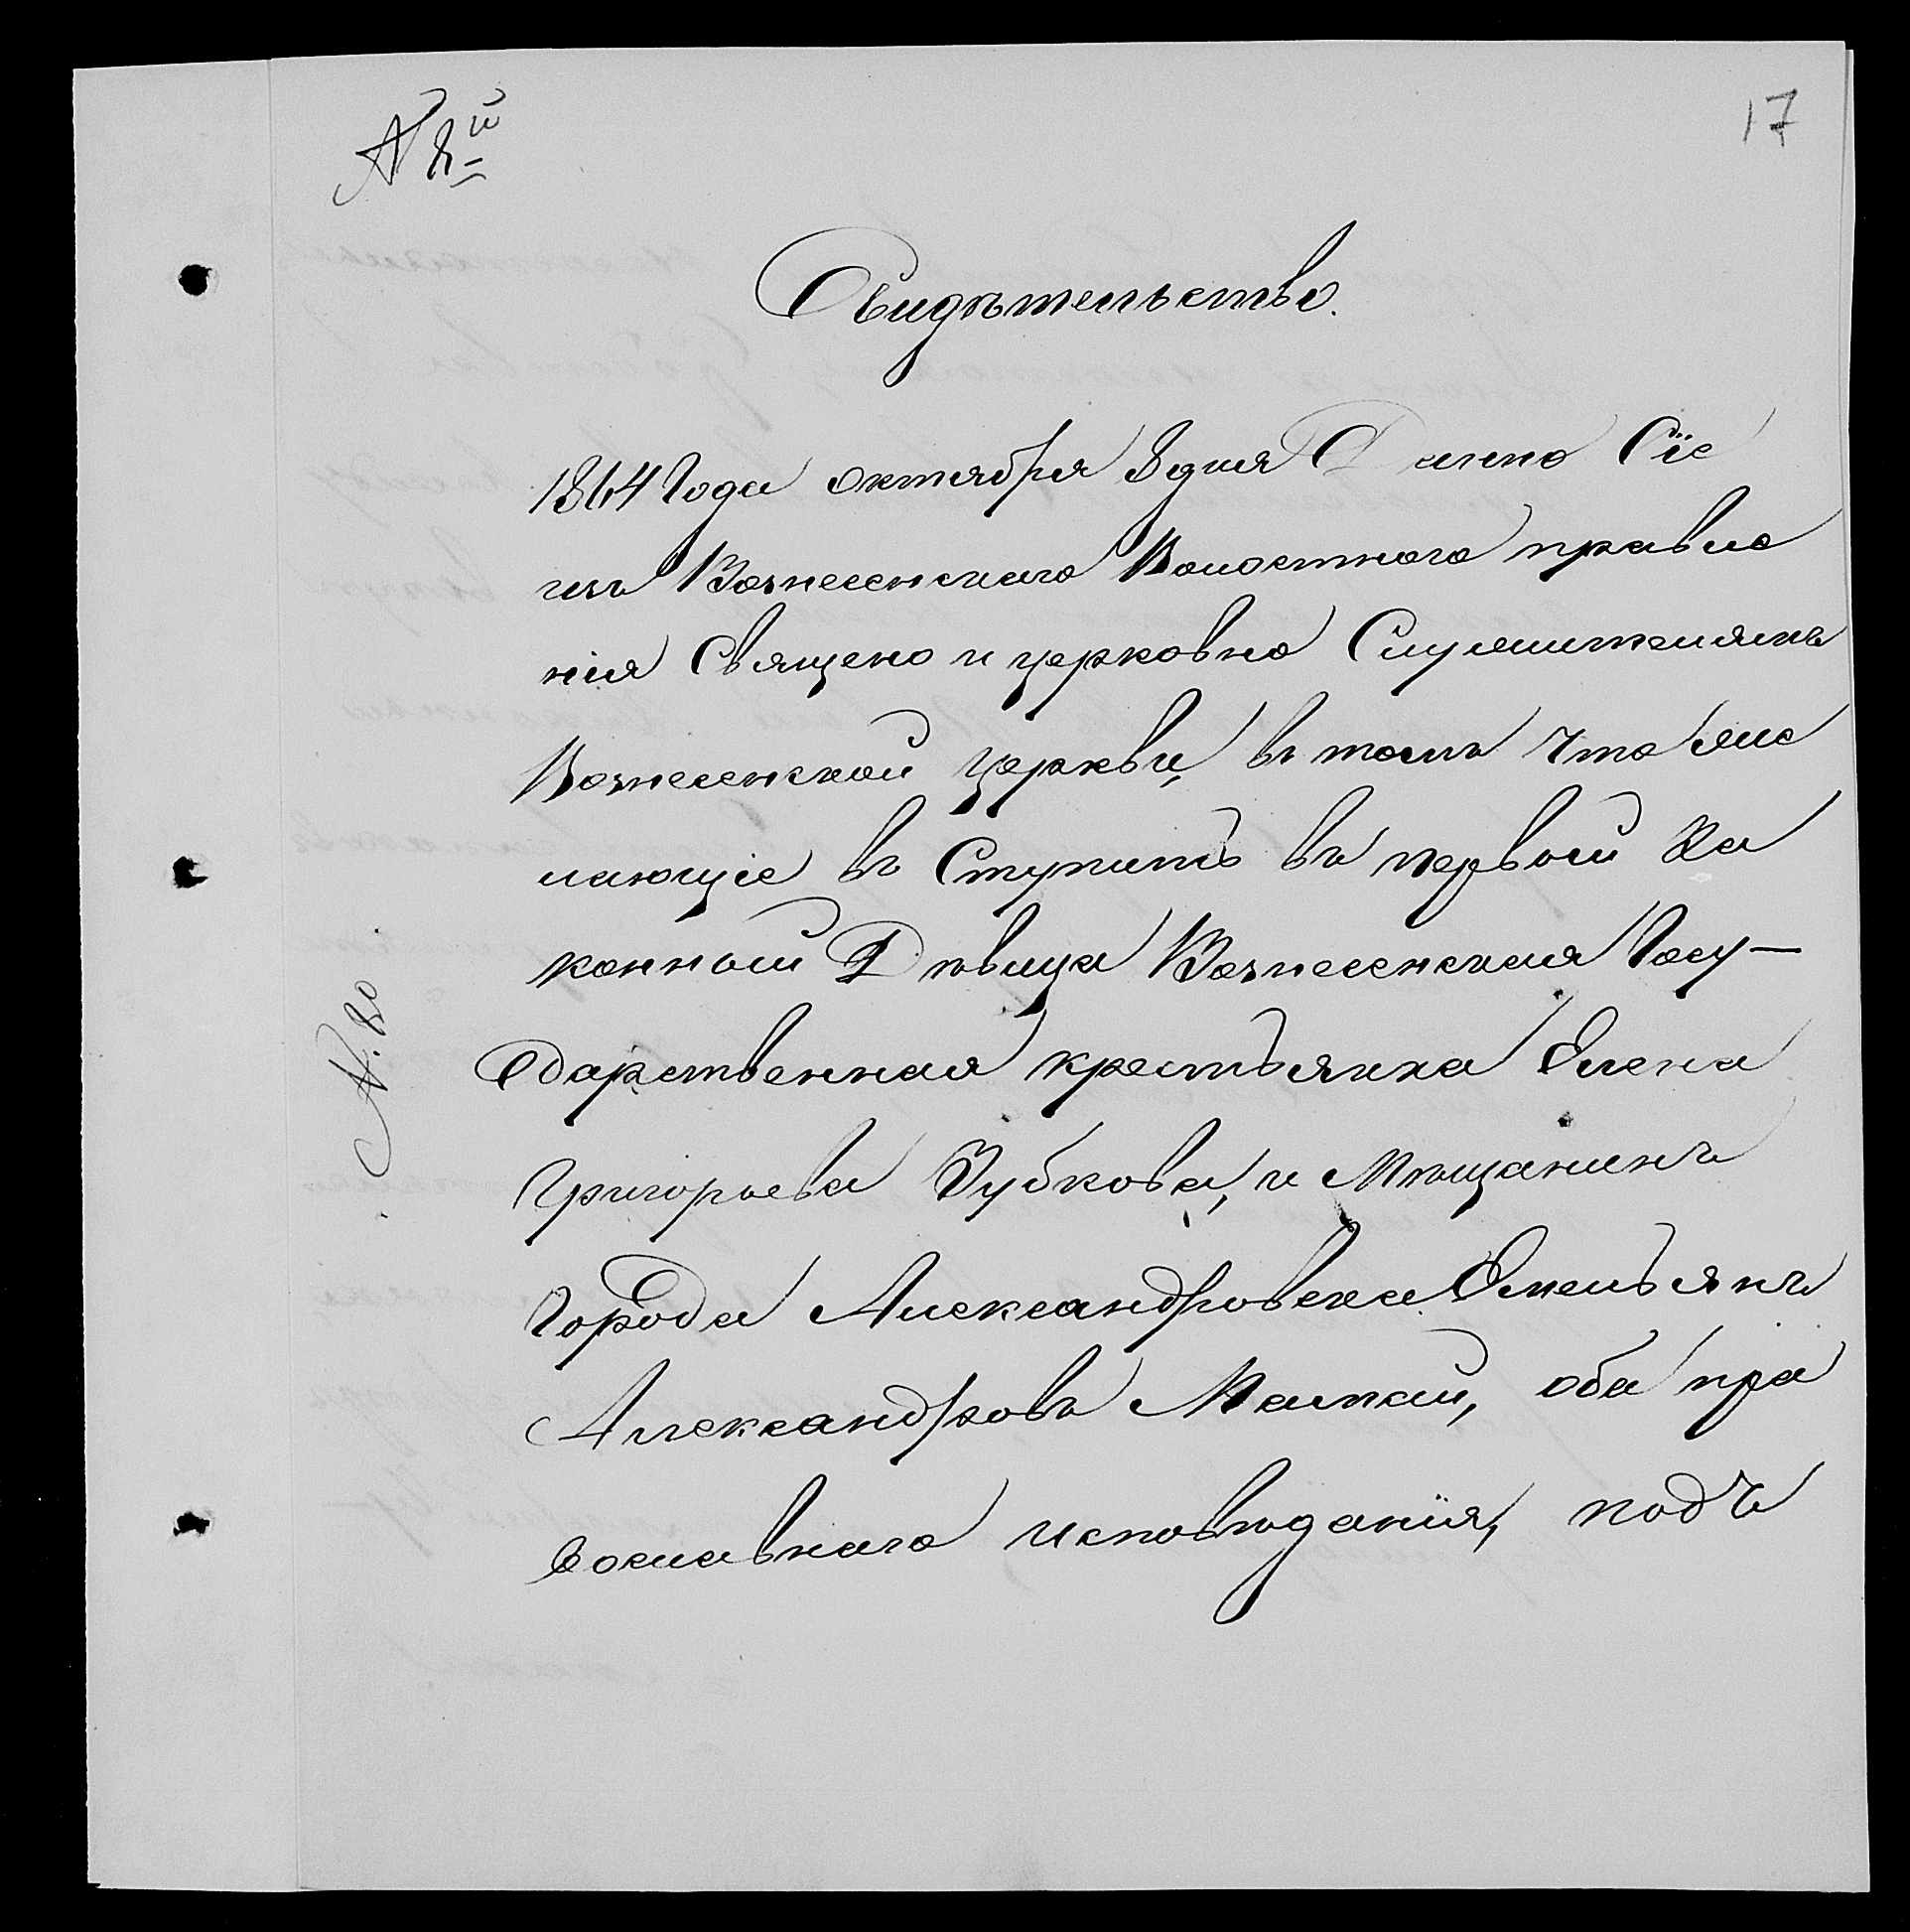 17
№ 8й
Свидѣтельство.
1864 Года октября 8 дня Дано Сіе
изъ Вознесенскаго Волостного правле
нія Священо и церковно Служителямъ
Вознесенской Церкви, въ томъ что же
лающіе въ Ступить въ первый За
конный Дѣвица Вознесенская Госу—
дарственная крестьянка Елена
Григорьева Зубкова, и Мѣщанинъ
города Александровска Емельянъ
Александровъ оба пра
вославнаго исповѣданія, подъ
№. 80